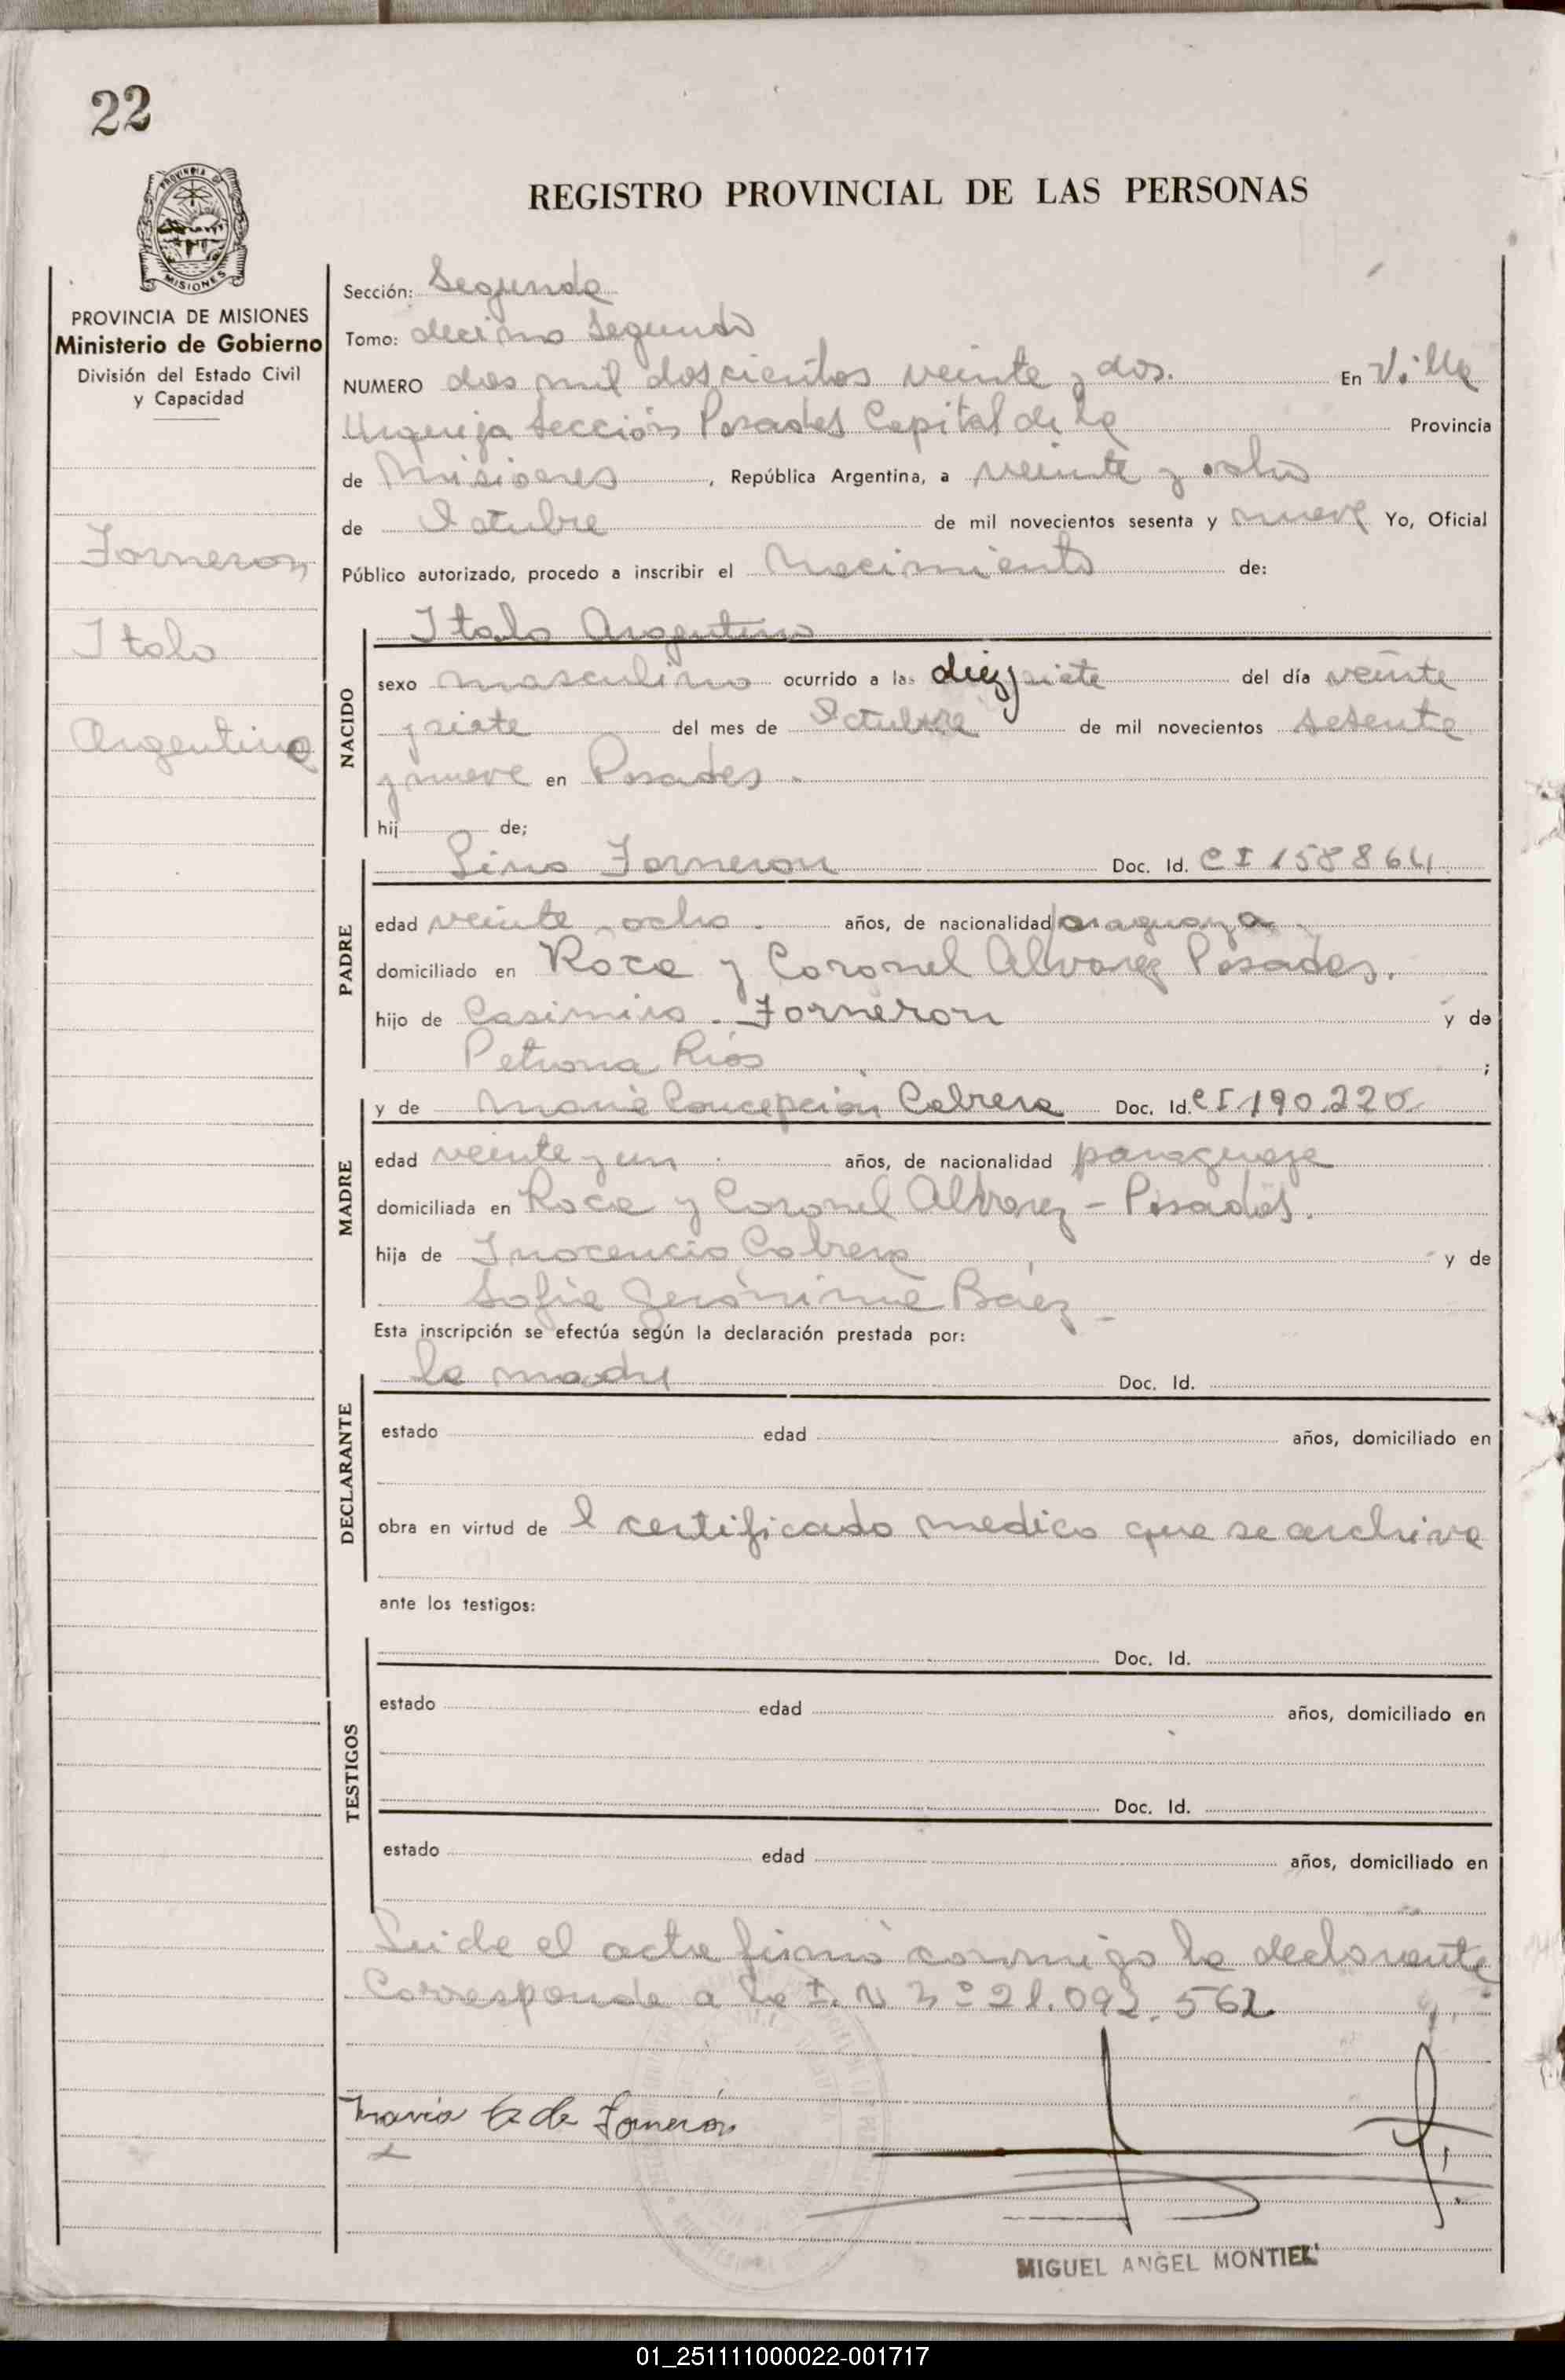 22
PROVINCIA
MISIONES
REGISTRO PROVINCIAL DE LAS PERSONAS
PROVINCIA DE MISIONES
Ministerio de Gobierno
División del Estado Civil
y Capacidad
Forneron
Italo
Argentino
Sección: Segunda
Tomo: decimo segundo
NUMERO dos mil doscientos veinte y dos. En Villa
Urquiza Sección Posadas Capital de la Provincia
de Misiones, República Argentina, a veinte y ocho
de Octubre de mil novecientos sesenta y nueve Yo, Oficial
Público autorizado, procedo a inscribir el Nacimiento de:
NACIDO
Italo Argentino
sexo masculino ocurrido a las diez y siete del día veinte
y siete del mes de Octubre de mil novecientos sesenta
y nueve en Posadas.
hij de;
PADRE
Lino Forneron Doc. Id. CI 158864
edad veinte ocho. años, de nacionalidad paraguaya.
domiciliado en Roca y Coronel Alvarez Posadas.
hijo de Casimiro. Forneron y de
Petrona Ríos ;
MADRE
y de María Concepción Cabrera Doc. Id. CI 190.220
edad veinte y un. años, de nacionalidad paraguaya
domiciliada en Roca y Coronel Alvarez - Posadas.
hija de Inocencio Cabrera y de
Sofia Gerónima Báez -
Esta inscripción se efectúa según la declaración prestada por:
DECLARANTE
la madre Doc. Id.
estado edad años, domiciliado en
obra en virtud de l certificado medico que se archiva
ante los testigos:
TESTIGOS
Doc. Id.
estado edad años, domiciliado en
Doc. Id.
estado edad años, domiciliado en
Leida el acta firmó conmigo la declarante
Corresponde a la 21.092.562
María C de Fornerón
MIGUEL ANGEL MONTIEL
01_251111000022-001717